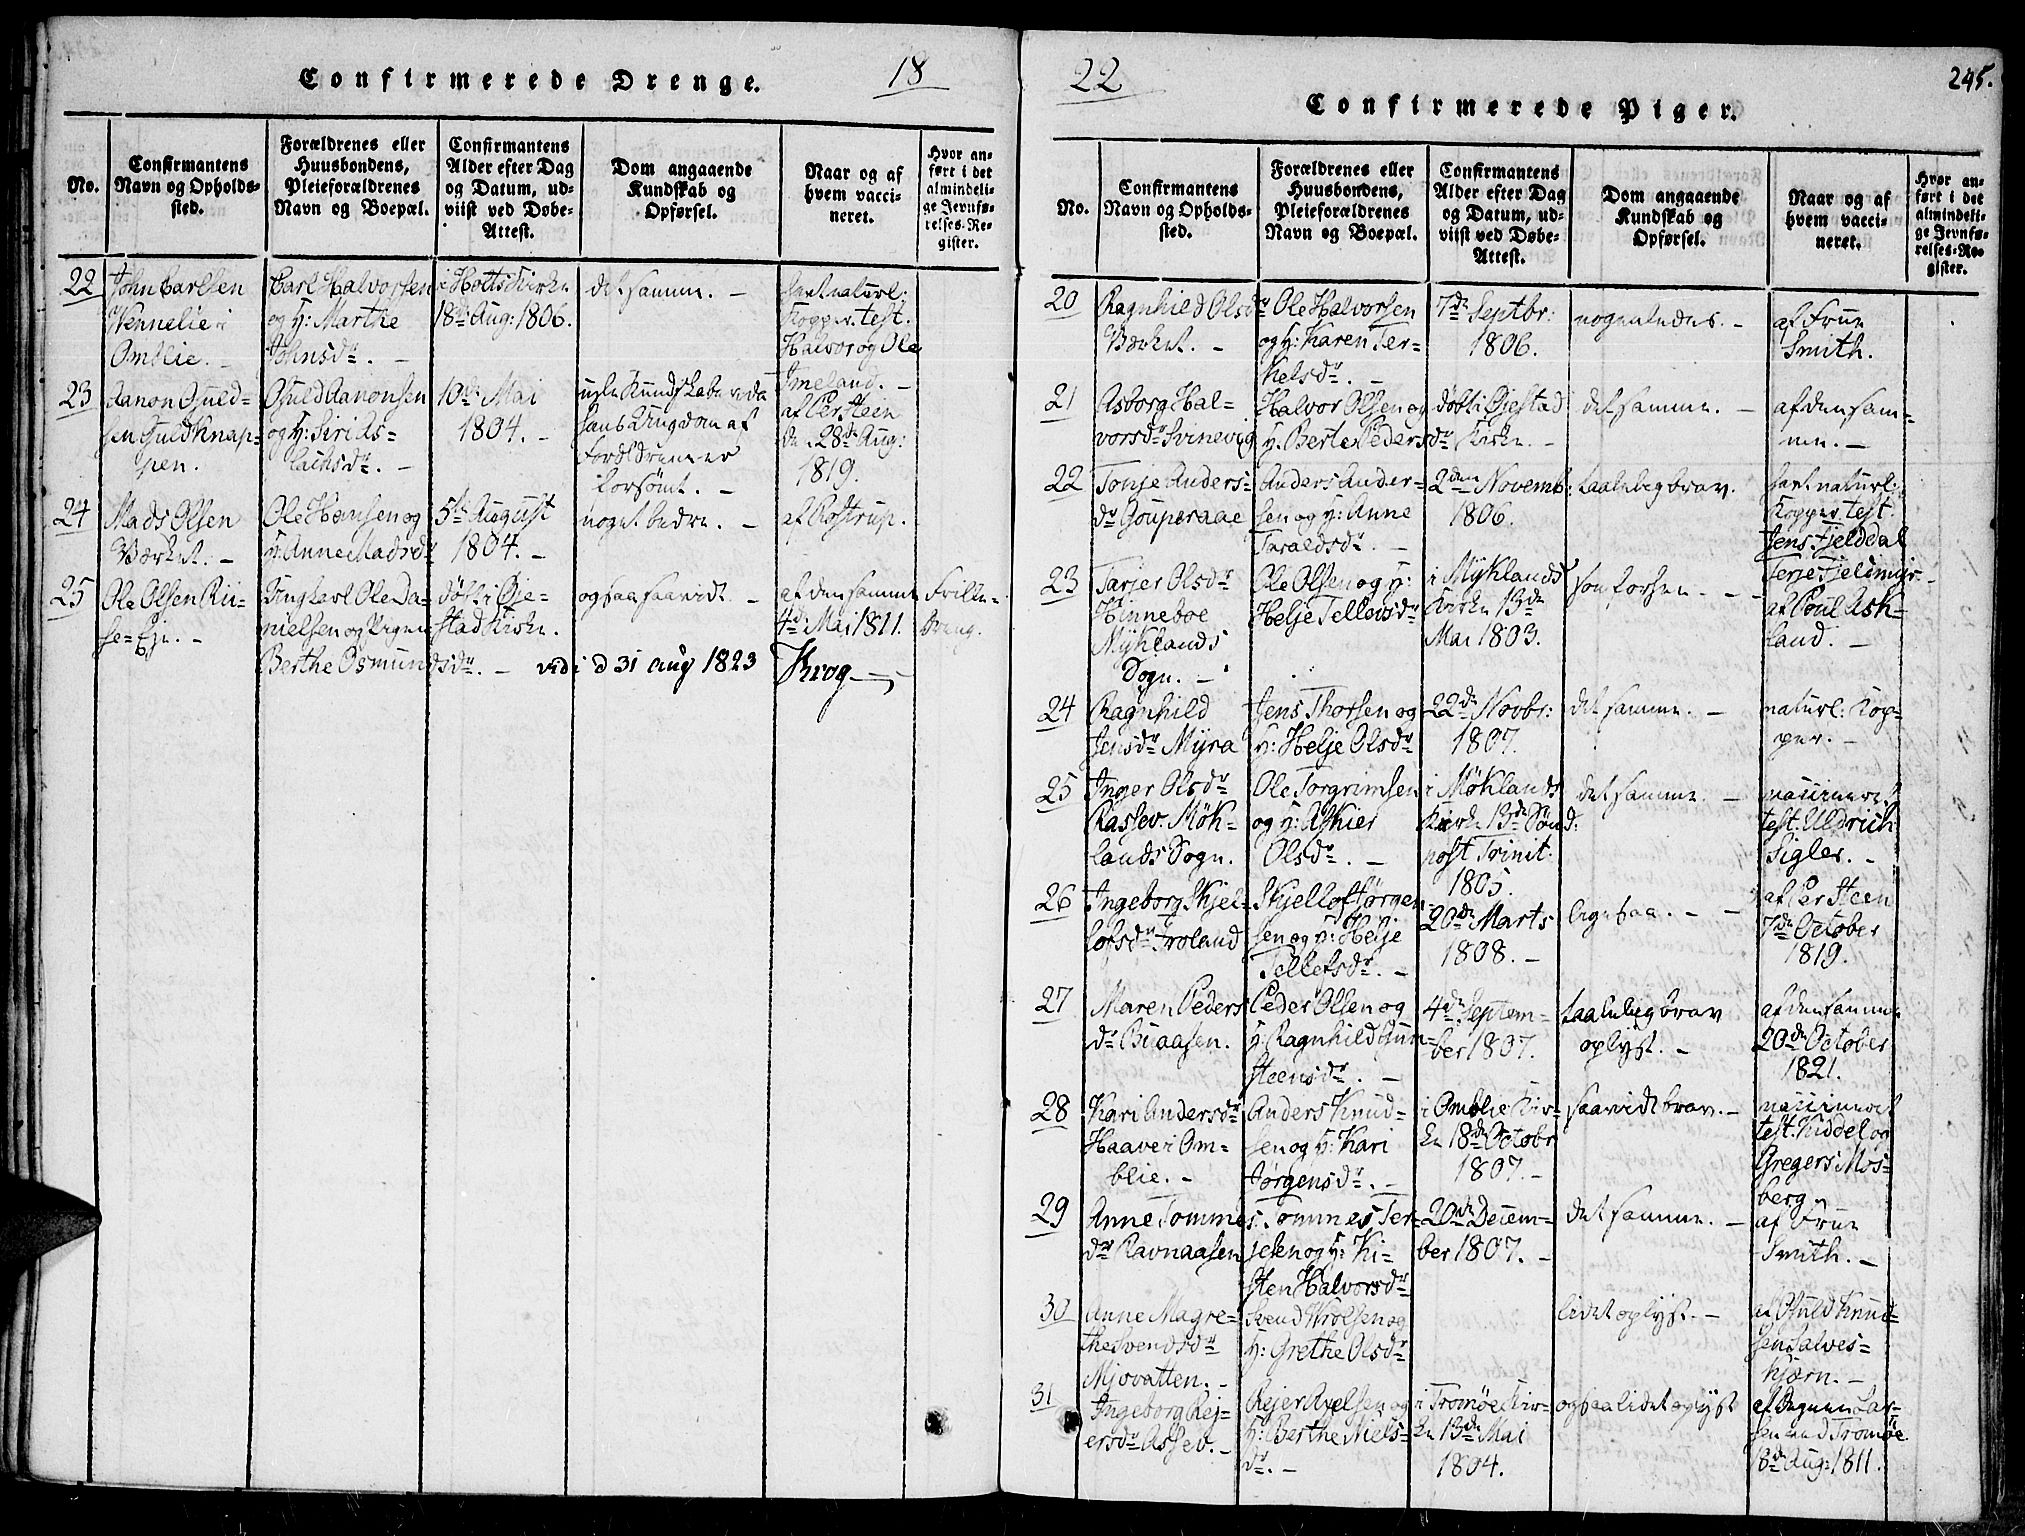 Confirmerede Drenge. 18
No.
Confirmantens
Navn og Opholds-
sted.
Forældrenes eller
Huusbondens,
Pleieforældrenes
Navn og Boepæl.
Confirmantens
Alder efter Dag
og Datum, ud-
viist ved Døbe-
Attest.
Dom angaaende
Kundskab og
Opførsel.
Naar og af
hvem vacci-
neret.
Hvor an-
ført i det
almindeli-
ge Jevnfø-
relses-Re-
gister.
22
John Carlsen
Wennelie i
Omlie. -
Carl Halvorsen
og H: Marthe
Johnsdr. -
i Holts Kirke
18de Aug: 1806.
det samme. -
havt naturl:
Kopper. test.
Halvor og Ole
Imeland. -
23
Aanon Gjuld-
sen Guldknap-
pen.
Gjuld Aanonsen
og H: Sirids-
lachsdr. -
10de Mai
1804. -
hans Ungdom af
Forældrene er
forsømt. -
af Per Steen
d. 28de Aug:
1819.
24
Mads Olsen
Værket. -
Ole Hansen og
H: Anne Madsdr
5te August
1804. -
noget bedre. -
af Rostrup.
25
Ole Olsen Rii-
se-Eje. -
Ungkarl Ole Da-
nielsen og Pigen
Berthe Osmundsdr. -
døbt i Øje-
stad Kirke.
ogsaa saavidt. -
af den samme
4de Mai 1811.
vidi d 31 aug 1823 Krog
22 245.
Confirmerede Piger.
No.
Confirmantens
Navn og Opholds-
sted.
Forældrenes eller
Huusbondens,
Pleieforældrenes
Navn og Boepæl.
Confirmantens
Alder efter Dag
og Datum, ud-
viist ved Døbe-
Attest.
Dom angaaende
Kundskab og
Opførsel.
Naar og af
hvem vacci-
neret.
Hvor an-
ført i det
almindeli-
ge Jevnfø-
relses-Re-
gister.
20
Ragnhild Olsdr
Værket. -
Ole Halvorsen
og H: Karen Ter-
kelsdr. -
7de Septbr:
1806.
nogenledes. -
af Frue
Smith.
21
Asborg Hal-
vorsdr Svinevig
Halvor Olsen og
H. Berte Pedersdr
døbt i Øjestad
Kirke. -
det samme. -
af den sam-
me. -
22
Tonje Anders-
dr Gouperaae
Anders Ander-
sen og H: Anne
Taraldsdr. -
2den Novemb:
1806.
taalelig brav.
havt naturl:
Kopper test.
Jens Fjelddal
Terje Fjeldmyr
23
Tarjer Olsdr
Hinneboe
Mÿklands
Sogn. -
Ole Olsen og H:
Helje Tellevsdr
i Mÿklands
Kirke 13de
Mai 1803.
som forhen. -
af Poul Ask-
land. -
24
Ragnhild
Jensdr Mÿra
Jens Thorsen og
H: Helje Olsdr
22de Novbr:
1807.
det samme. -
naturl: Kop-
per. -
25
Inger Olsdr
Raslev. Møk-
lands Sogn.
Ole Torgrimsen
og H: Askier
Olsdr. -
i Møklands
Kirke 13de Sønd:
post Trinit:
1805.
det samme. -
vaccineret
test. Uldrich
Sigler. -
26
Ingeborg Skjel-
lofsdr Froland
Skjellof Jørgen-
sen og H: Helje
Tellefsdr. -
20de Marts
1808. -
ligesaa. -
af Per Steen
7de October
1819.
27
Maren Peders
dr Buaasen.
Peder Olsen og
H: Ragnhild Gun-
steensdr. -
4de Septem-
ber 1807.
taalelig brav
oplyst. -
af den samme
20de October
1821.
28
Kari Andersdr
Haaver Om-
blie. -
Anders Knud-
sen og H: Kari
Jørgensdr. -
i Omblie Kir-
ke 18de Octobr
1807. -
saavidt brav. -
vaccineret
test. Kiddel og
Gregers Mos-
berg.
29
Anne Tommes
dr Ravnaasen
Tommes Ter-
jesen og H: Ki-
sten Halvorsdr
20de Decem-
ber 1807. -
det samme. -
af Frue
Smith. -
30
Anne Magre-
the Svendsdr
Mjovatten. -
Svend Wrolsen og
H: Grethe Olsdr
lidet oplyst. -
af Gjuld Knud-
sen Salves-
kjærn. -
31
Ingeborg Rej-
ersdr Assev. -
Rejer Axelsen og
H: Berthe Niels-
dr. -
i Tromøe Kir-
ke 13de Mai
1804.
ogsaa lidet oplyst
af Degnen Lar-
sen ved Tromøe
18de Aug: 1811.